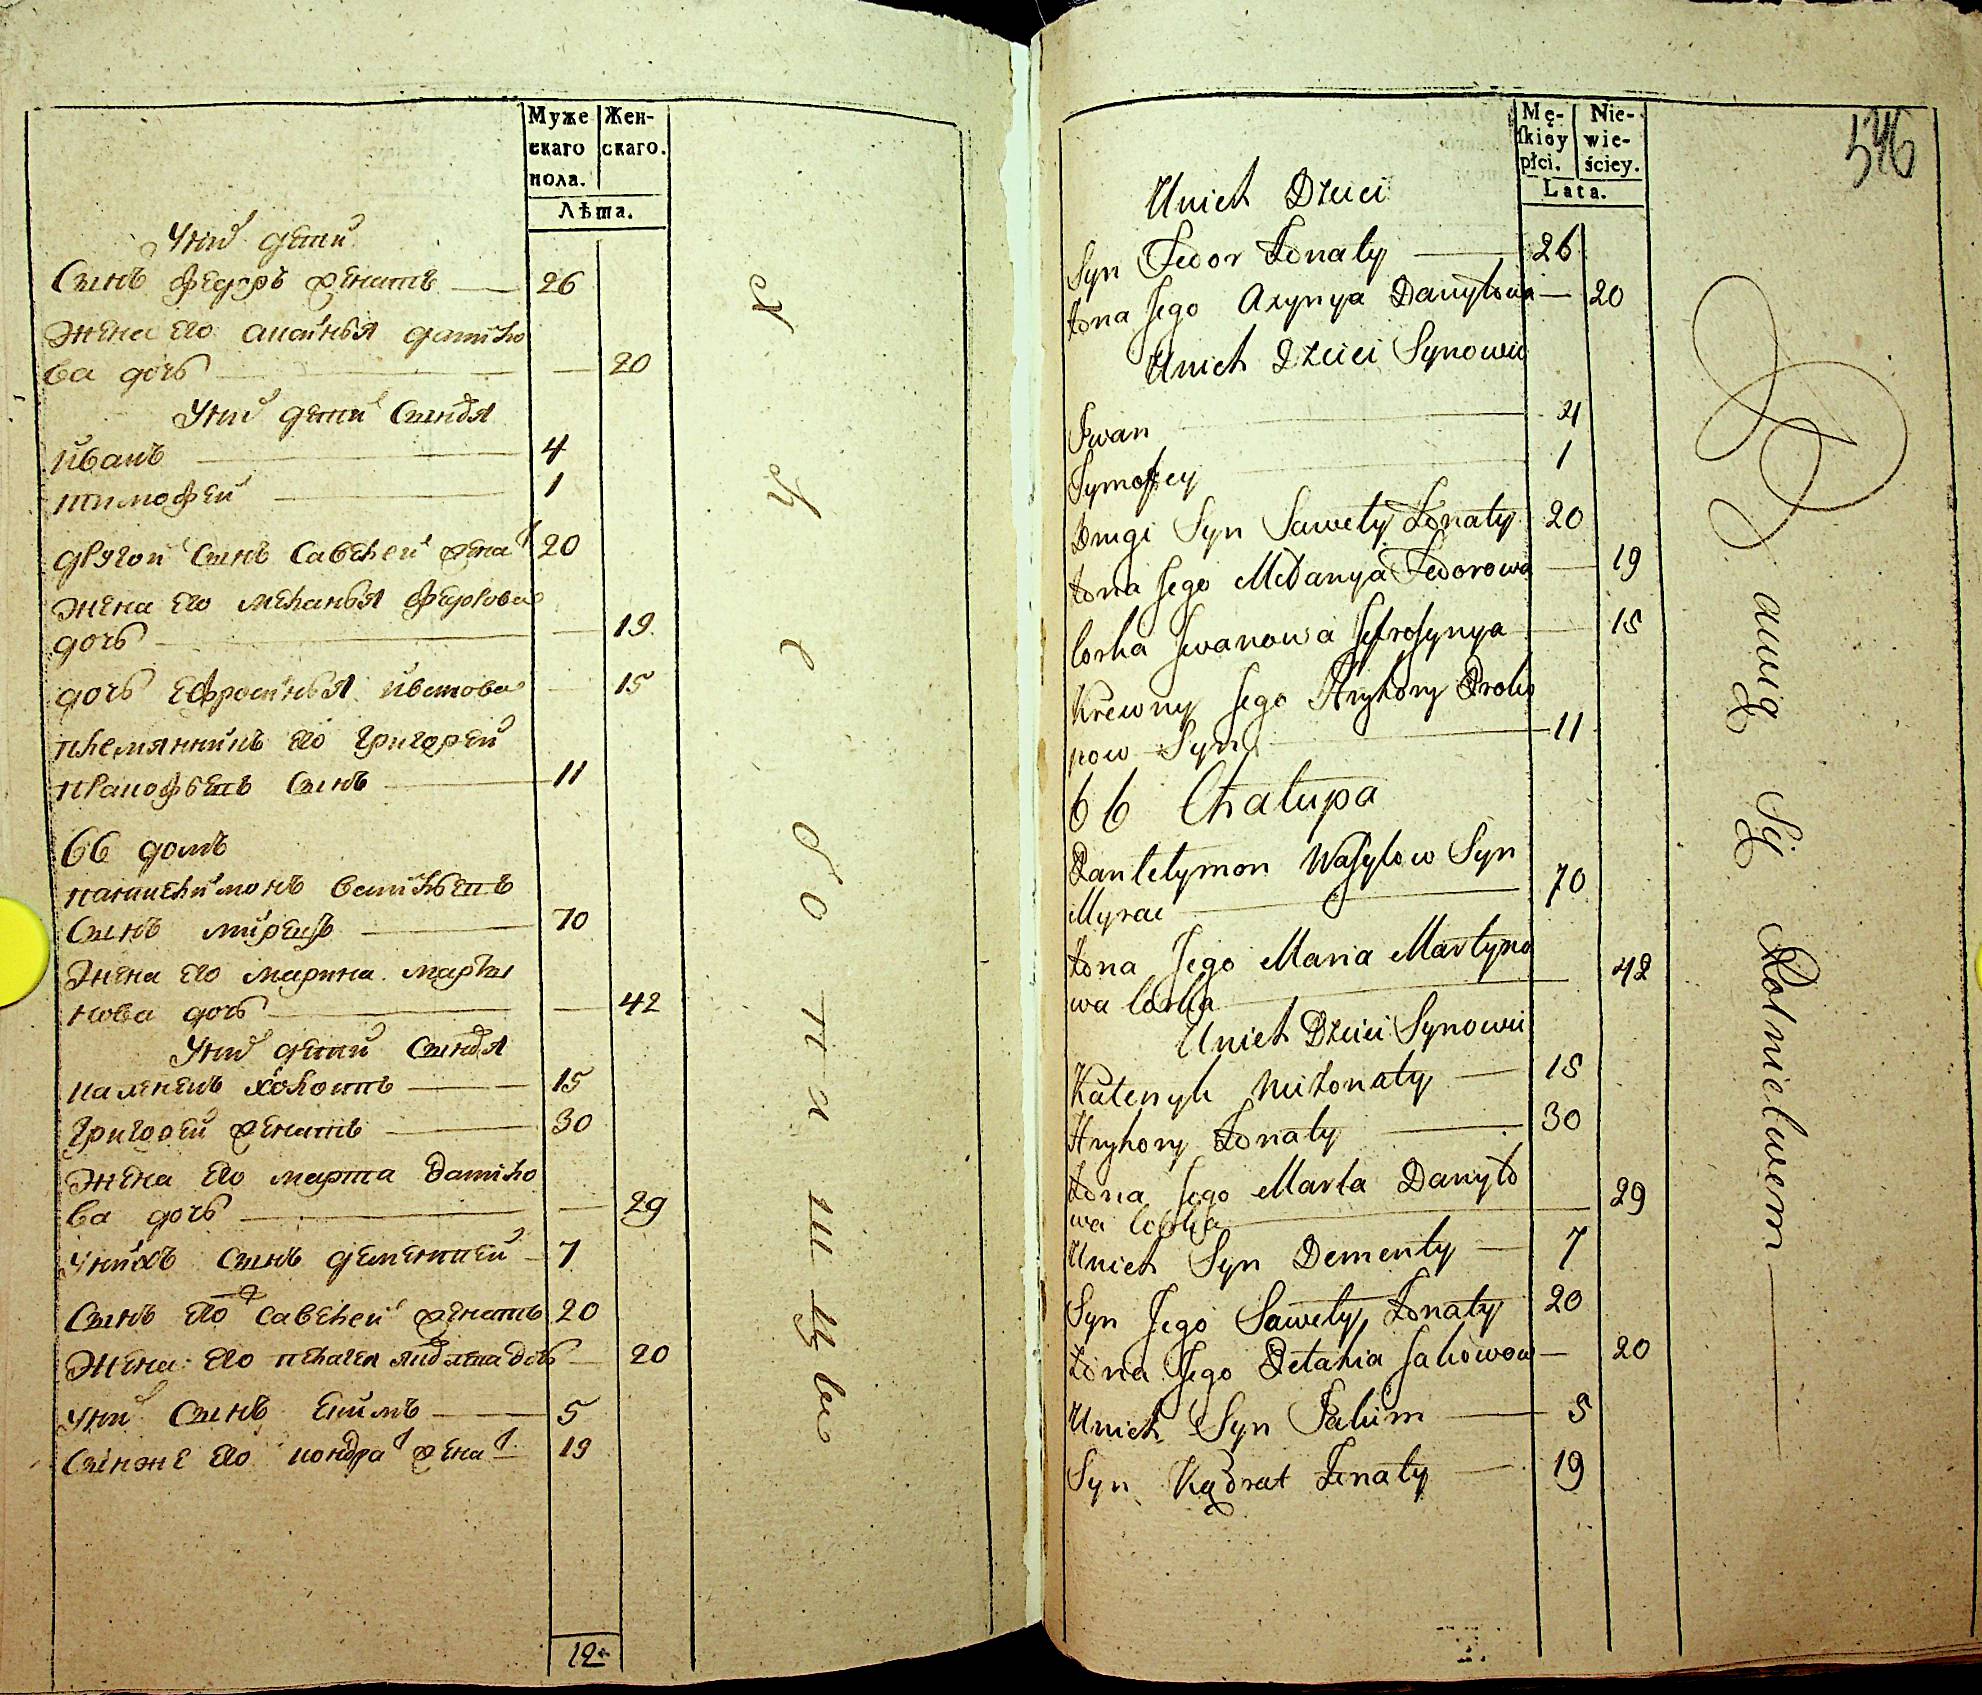 Муже
скаго
пола.
Жен-
скаго.
Лѣта.
Унихъ дети
Сынъ Федоръ женатъ 26
Жена его
ва дочь 20
Унихъ дети Сыновья
Иванъ 4
тимофей 1
другой Сынъ Савелей жена 20
Жена его меланья Федорова
дочь 19
дочь ефросинья 15
племянникъ его Григорей
Сынъ 11
66 домъ
пантелимонъ васильевъ
Сынъ 70
Жена его марина марты
нова дочь 42
Унихъ дети Сыновья
холостъ 15
Григорей женатъ 30
Жена его марта данило
ва дочь 29
Унихъ Сынъ дементей 7
Сынъ его Савелей женатъ 20
Жена его пелагея 20
Унихъ Сынъ 5
его кондра жена 19
12
Mę-
skiey
płci.
Nie-
wie-
ściey.
Lata.
546
Unich Dzieci
Syn Fedor Żonaty 26
Żona Jego Axynya Danyłowa 20
Unich Dzieci Synowie
Iwan 4
Tymofiey 1
Drugi Syn Sawety Żonaty 20
Żona Jego Mełanya Fedorowa 19
Corka Iwanowa Jefrosynya 15
Krewny Jego Hryhory Proko
pow Syn 11
66 Chałupa
Pantelymon Wasylow Syn
70
Żona Jego Maria Martyno
wa Corka 42
Unich Dzieci Synowie
Nieżonaty 15
Hryhory Żonaty 30
Żona Jego Marta Danyło
wa Corka 29
Unich Syn Dementy 7
Syn Jego Sawely Żonaty 20
Żona Jego Pelahia Jakowow 20
Unich Syn Jakim 5
Syn Kądrat Żonaty 19
bawią Się Rolnictwem